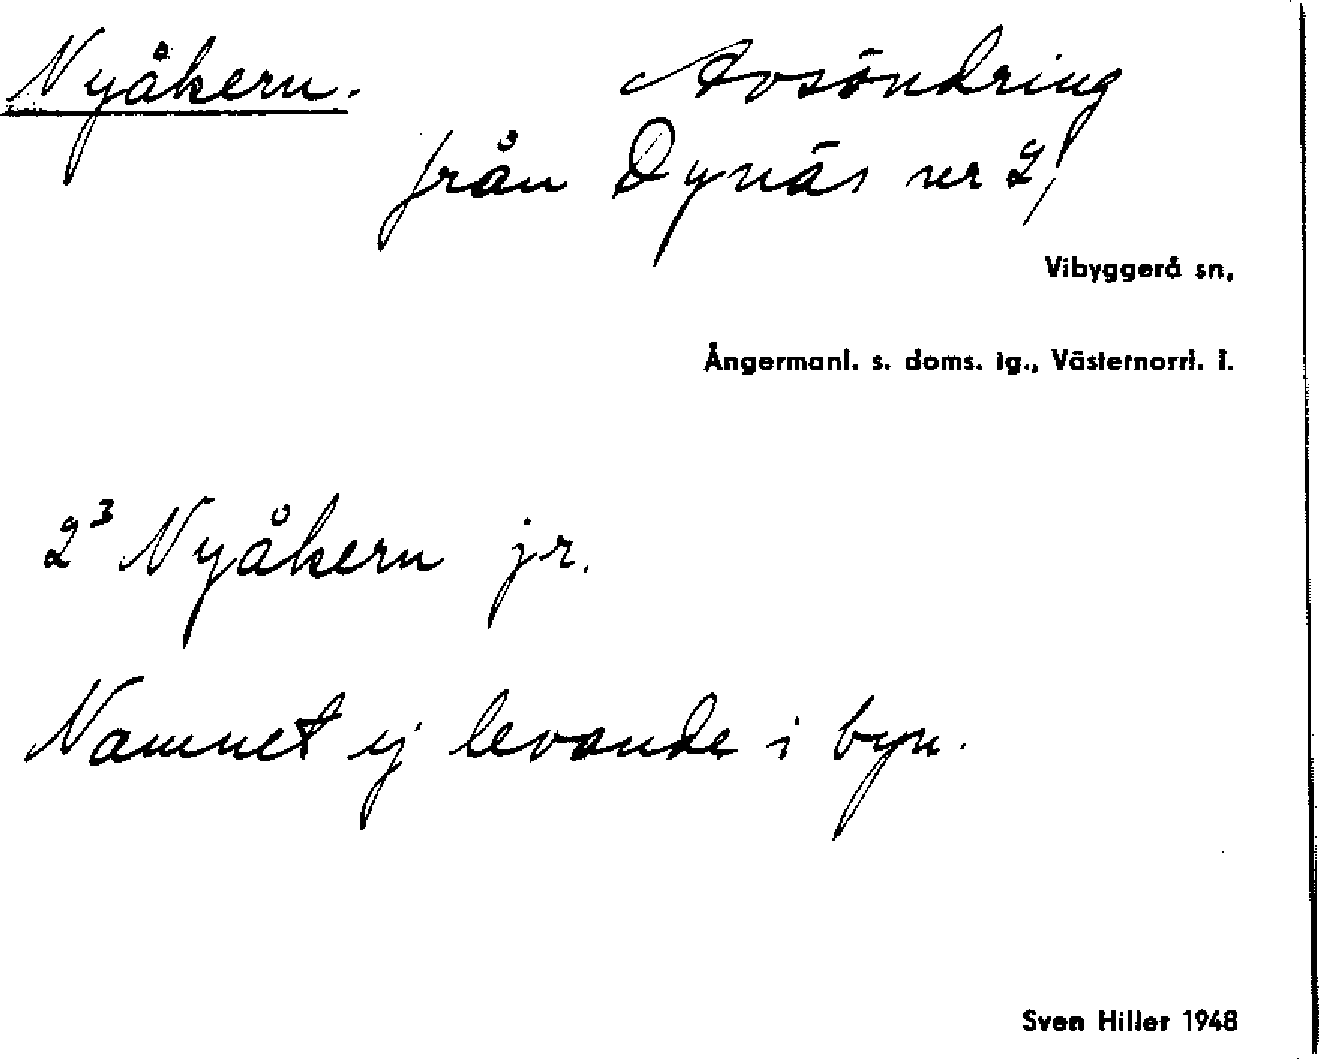 Nyåkern. Avsöndring
från Dynäs nr 2,
Vibyggerå sn,
Ångermanl. s. doms. tg., Västernorrl. l.
2³ Nyåkern jr.
Namnet ej levande i byn.
Sven Hiller 1948